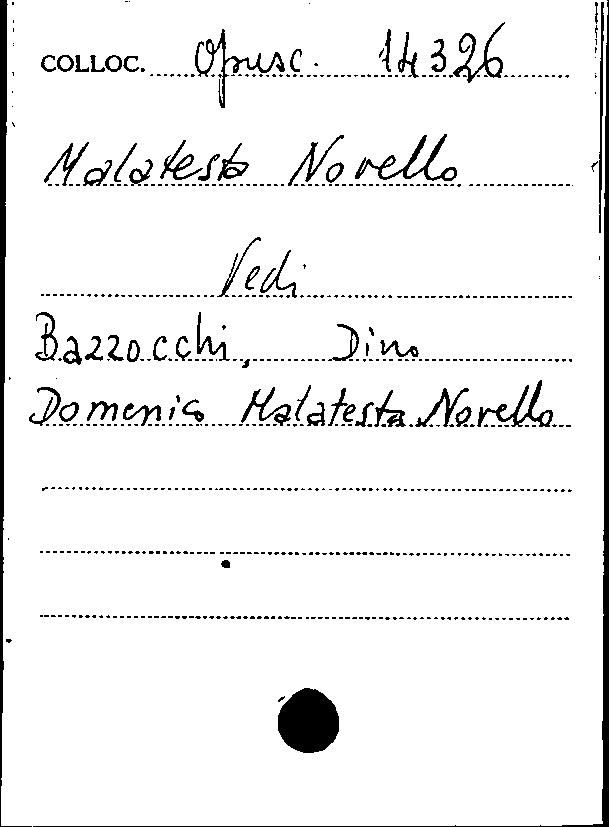 COLLOC. Opusc. 14326
Malatesta Novello
Vedi
Bazzocchi, Dino
Domenico Malatesta Novello